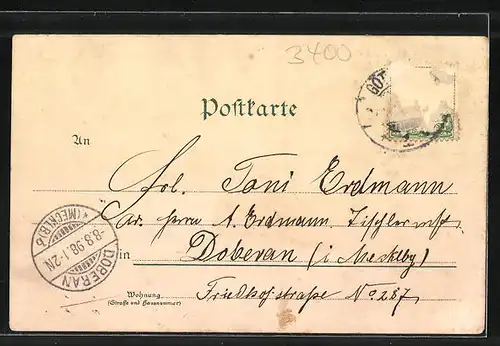 3400
GÖT
Postkarte
An
Frl. Toni Erdmann
Adr. Herrn A. Erdmann, Tischlermstr.
in Doberan (i Mecklbg)
Wohnung
(Straße und Hausnummer)
Friedhofstraße No 287
DOBERAN
-8.8.98.1-2N
*(MECKLB.)